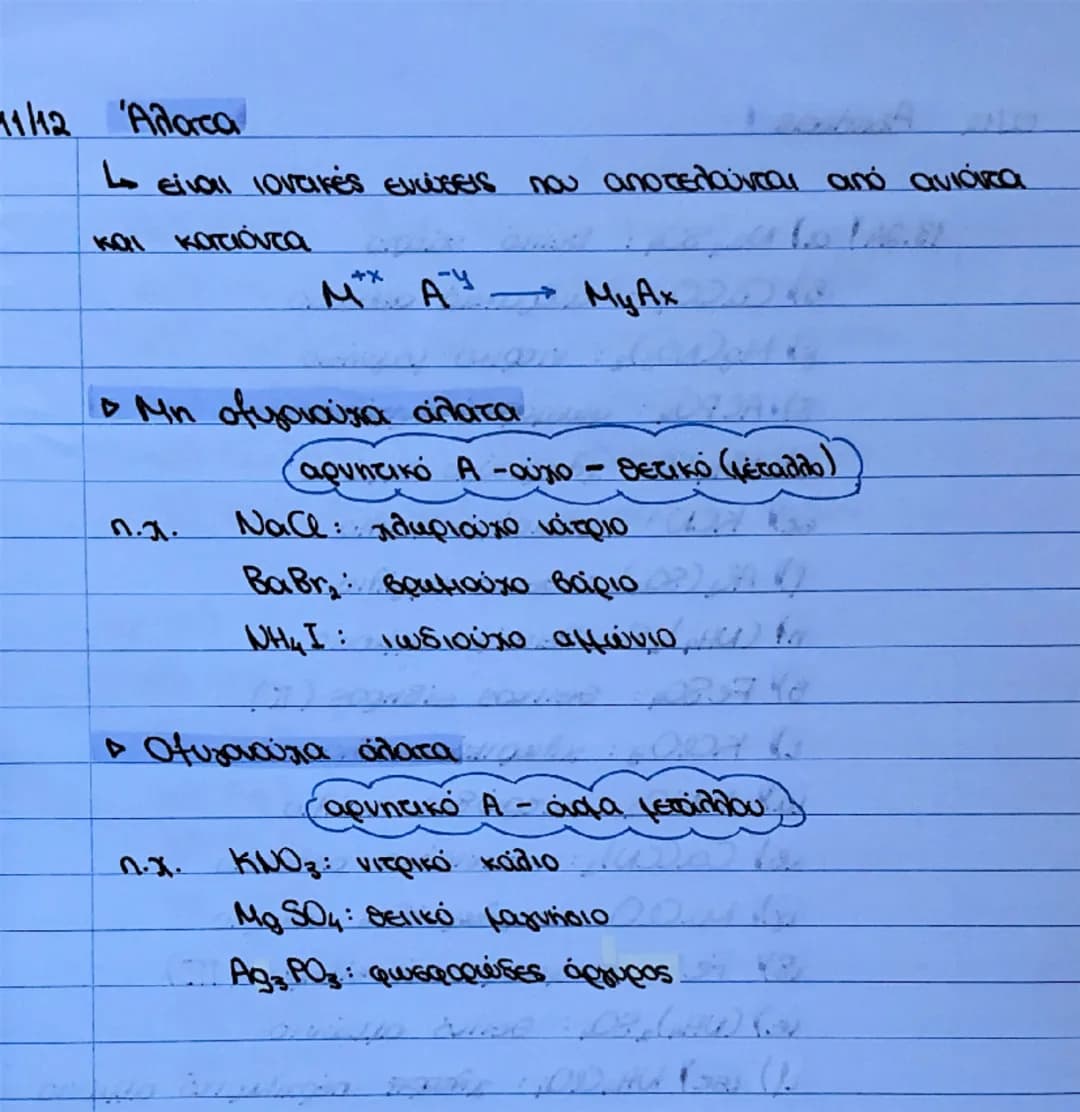 11/12 Άλατα
↳ είναι ιοντικές ενώσεις που αποτελούνται από ανιόντα
και κατιόντα
M⁺ˣ A⁻ʸ → MyAx
▷ Μη οξυγονούχα άλατα
αρνητικό Α -ούχο - θετικό (μέταλλο)
π.χ. NaCl: χλωριούχο νάτριο
BaBr₂: βρωμιούχο βάριο
NH₄I: ιωδιούχο αμμώνιο
▷ Οξυγονούχα άλατα
αρνητικό Α - μετάλλου
π.χ. KNO₃: νιτρικό κάλιο
MgSO₄: θειικό μαγνήσιο
Ag₃PO₃: φωσφορώδες άργυρος